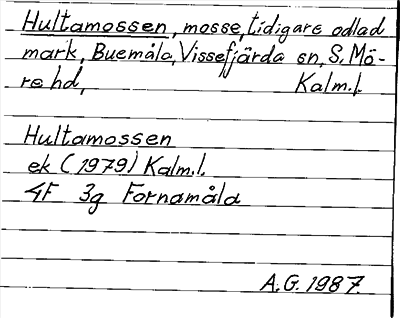 Hultamossen, mosse, tidigare odlad
mark, Buemåla, Vissefjärda sn, S. Mö-
re hd, Kalm.l.
Hultamossen
ek (1979) Kalm.l.
4F 3g Fornamåla
A.G. 1987.